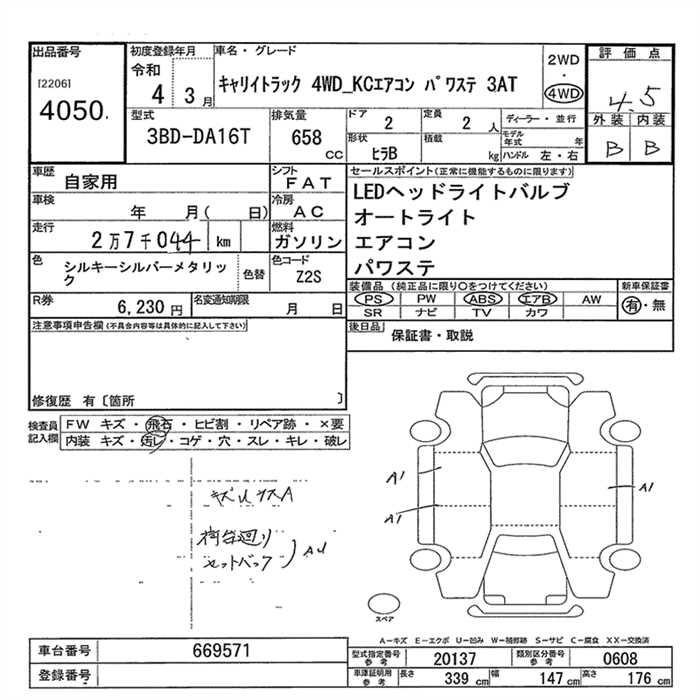 出品番号
[2206]
4050.
初度登録年月
令和
4 3月
車名・グレード
キャリイトラック 4WD_KCエアコン パワステ 3AT
2WD
・
4WD
評価点
4.5
外装 内装
B B
型式
3BD-DA16T
排気量
658
CC
ドア
2
定員
2 人
ディーラー・並行
形状
ヒラB
積載
kg
モデル年式 年
ハンドル 左・右
車歴
自家用
シフト
FAT
車検
年 月( 日)
冷房
AC
走行
2万7千044 km
燃料
ガソリン
色
シルキーシルバーメタリック
色替
色コード
Z2S
セールスポイント(正常に機能するものに限ります)
LEDヘッドライトバルブ
オートライト
エアコン
パワステ
装備品(純正品に限り○をつけてください)
PS PW ABS エアB AW
SR ナビ TV カワ
新車保証書
有・無
R券
6,230 円
名変通知期限
月 日
後日品
保証書・取説
注意事項申告欄(不具合内容等は具体的に記入して下さい)
修復歴 有〔箇所 〕
検査員記入欄
FW キズ・飛石・ヒビ割・リペア跡・×要
内装 キズ・汚レ・コゲ・穴・スレ・キレ・破レ
キズU サスA
荷台廻り
セットバック
)AU
A1
A1
A1
スペア
A-キズ E-エクボ U-凹み W-補修跡 S-サビ C-腐食 XX-交換済
車台番号
669571
登録番号
型式指定番号
参考
20137
類別区分番号
参考
0608
車庫証明用
参考
長さ 339 cm 幅 147 cm 高さ 176 cm